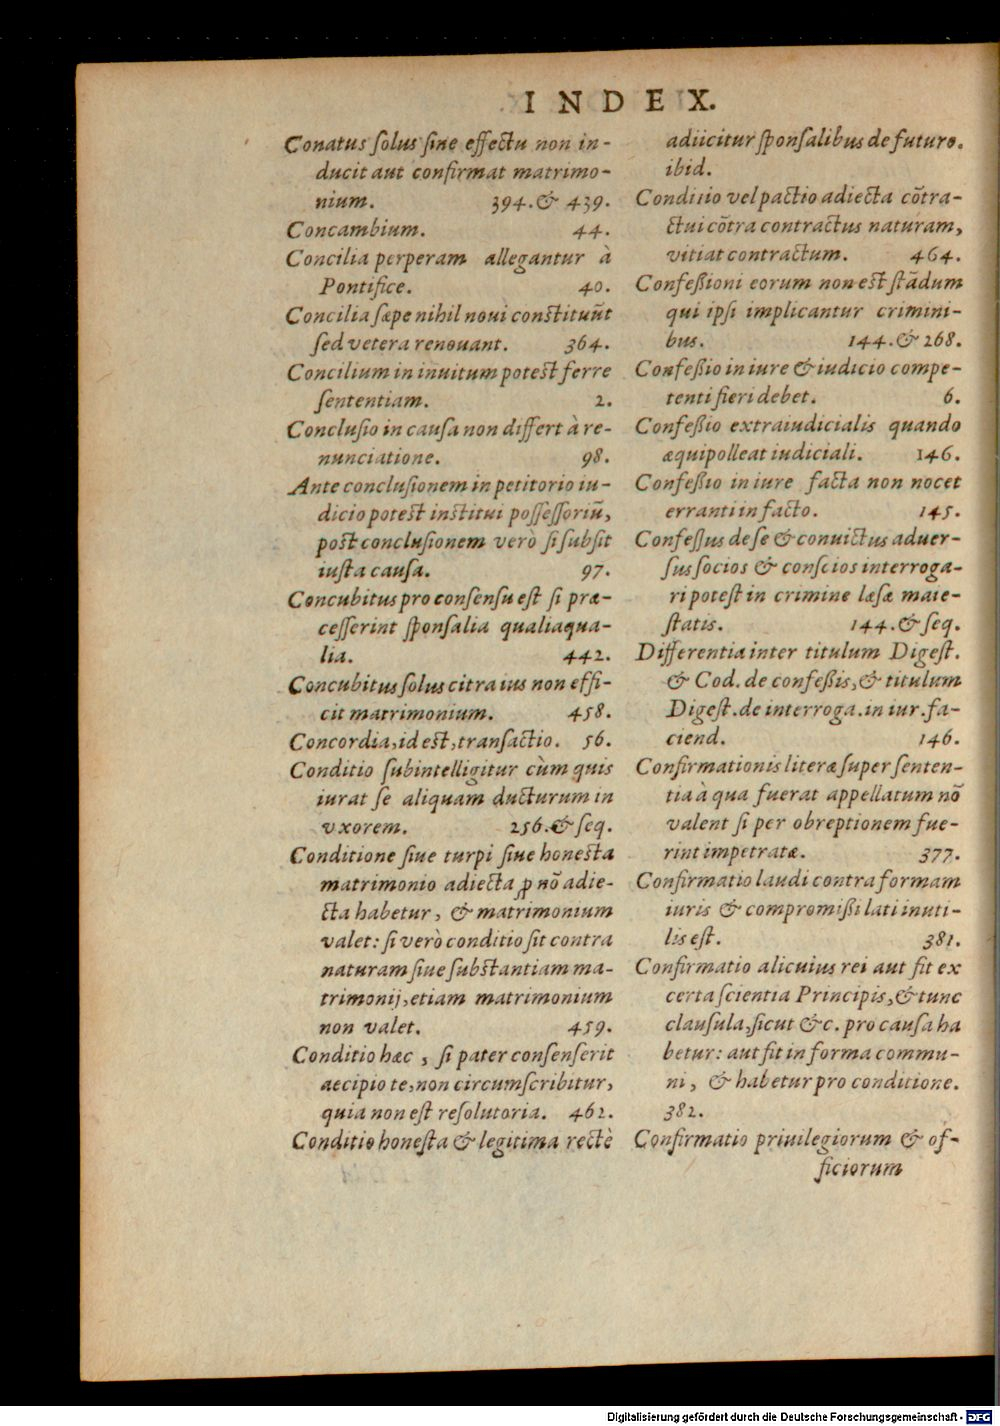 INDEX.
Conatus ſolus ſine effectu non in-
ducit aut confirmat matrimo-
nium. 394. & 439.
Concambium. 44.
Concilia perperam allegantur à
Pontifice. 40.
Concilia ſæpe nihil noui conſtituūt
ſed vetera renouant. 364.
Concilium in inuitum poteſt ferre
ſententiam. 2.
Concluſio in cauſa non differt à re-
nunciatione. 98.
Ante concluſionem in petitorio iu-
dicio poteſt inſtitui poſſeſſoriū,
poſt concluſionem verò ſi ſubſit
iuſta cauſa. 97.
Concubitus pro conſenſu eſt ſi præ-
ceſſerint ſponſalia qualiaqua-
lia. 442.
Concubitus ſolus citra ius non effi-
cit matrimonium. 458.
Concordia, id eſt, tranſactio. 56.
Conditio ſubintelligitur cùm quis
iurat ſe aliquam ducturum in
vxorem. 256. & ſeq.
Conditione ſiue turpi ſiue honeſta
matrimonio adiecta ꝓ nō adie-
cta habetur, & matrimonium
valet: ſi verò conditio ſit contra
naturam ſiue ſubſtantiam ma-
trimonij, etiam matrimonium
non valet. 459.
Conditio hæc, ſi pater conſenſerit
accipio te, non circumſcribitur,
quia non eſt reſolutoria. 462.
Conditio honeſta & legitima rectè
adiicitur ſponſalibus de futuro.
ibid.
Conditio vel pactio adiecta cōtra-
ctui cōtra contractus naturam,
vitiat contractum. 464.
Confeßioni eorum non eſt ſtādum
qui ipſi implicantur crimini-
bus. 144. & 268.
Confeßio in iure & iudicio compe-
tenti fieri debet. 6.
Confeßio extraiudicialis quando
æquipolleat iudiciali. 146.
Confeßio in iure facta non nocet
erranti in facto. 145.
Confeſſus de ſe & conuictus aduer-
ſus ſocios & conſcios interroga-
ri poteſt in crimine læſæ maie-
ſtatis. 144. & ſeq.
Differentia inter titulum Digeſt.
& Cod. de confeßis, & titulum
Digeſt. de interroga. in iur. fa-
ciend. 146.
Confirmationis literæ ſuper ſenten-
tia à qua fuerat appellatum nō
valent ſi per obreptionem fue-
rint impetratæ. 377.
Confirmatio laudi contra formam
iuris & compromißi lati inuti-
lis eſt. 381.
Confirmatio alicuius rei aut fit ex
certa ſcientia Principis, & tunc
clauſula, ſicut &c. pro cauſa ha
betur: aut fit in forma commu-
ni, & habetur pro conditione.
382.
Confirmatio priuilegiorum & of-
ficiorum
Digitalisierung gefördert durch die Deutsche Forschungsgemeinschaft - DFG